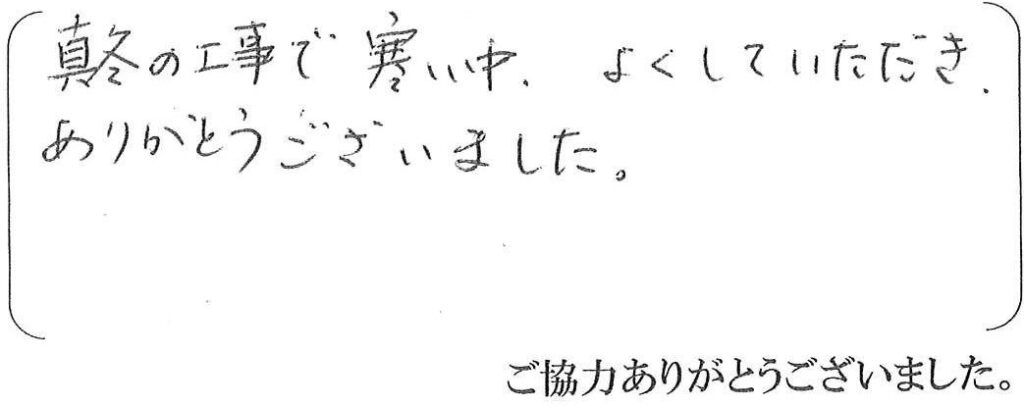 真冬の工事で寒い中、よくしていただき、
ありがとうございました。
ご協力ありがとうございました。